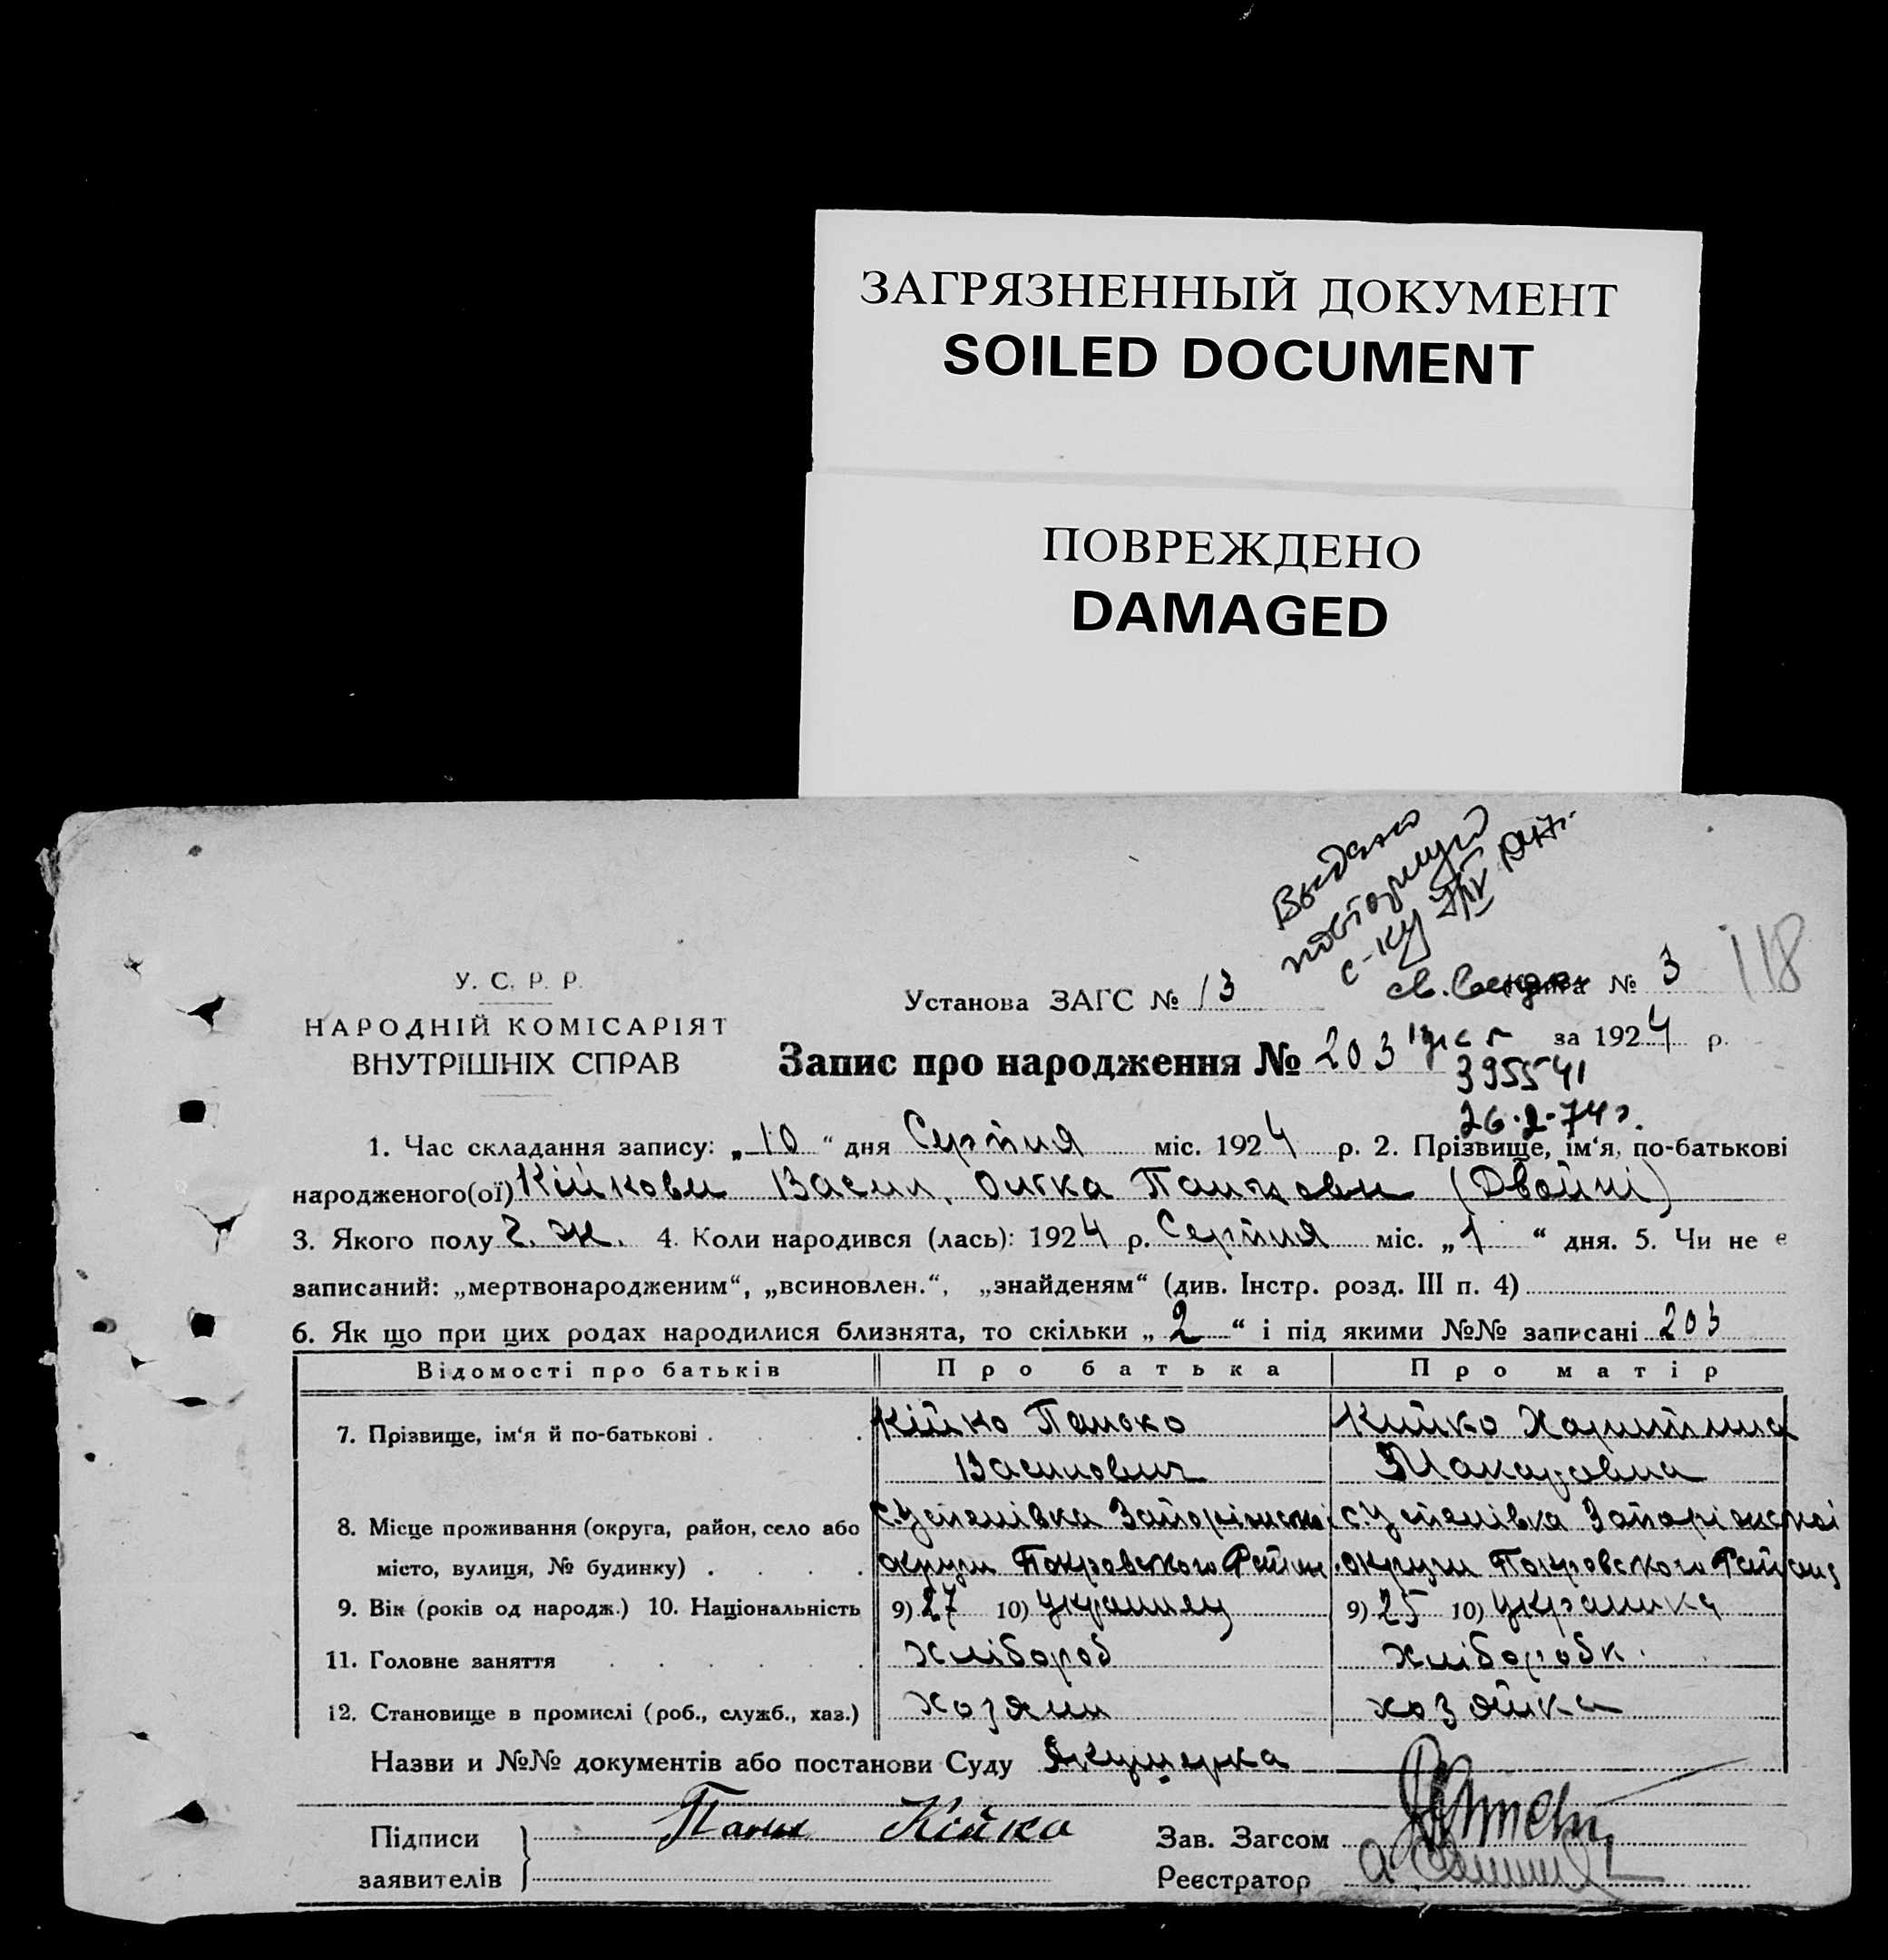 ЗАГРЯЗНЕННЫЙ ДОКУМЕНТ
SOILED DOCUMENT
ПОВРЕЖДЕНО
DAMAGED
Выдано
повторную
с-ку
118
У. С. Р. Р.
НАРОДНІЙ КОМІСАРІЯТ
ВНУТРІШНІХ СПРАВ
Установа ЗАГС № 13
№ 3
Запис про народження № 203 за 1924 р.
395541
26.2.74г.
1. Час складання запису: „10“ дня Серпня міс. 1924 р. 2. Прізвище, ім‘я, по-батькові
народженого(ої) Кійкови Васил, Панькови (Двойні)
3. Якого полу ч. ж. 4. Коли народився (лась): 1924 р. Серпня міс. „1“ дня. 5. Чи не є
записаний: „мертвонародженим“, „всиновлен.“, „знайденям“ (див. Інстр. розд. III п. 4)
6. Як що при цих родах народилися близнята, то скільки „2“ і під якими №№ записані 203
Відомості про батьків Про батька Про матір
7. Прізвище, ім‘я й по-батькові . Кійко Панько Кийко Харитина
Василович Макаровна
8. Місце проживання (округа, район, село або с. Успенівка Запоріжської с. Успенівка Запоріжскої
місто, вулиця, № будинку) . округи Покровського Район округи Покровського Району
9. Вік (років од народж.) 10. Національність 9) 27 10) Украинец 9) 25 10) Украинка
11. Головне заняття Хлібороб хліборобк.
12. Становище в промислі (роб., служб., хаз.) хозяин хозяйка
Назви и №№ документів або постанови Суду Якушерка
Підписи заявителів Кійко
Зав. Загсом
Реєстратор